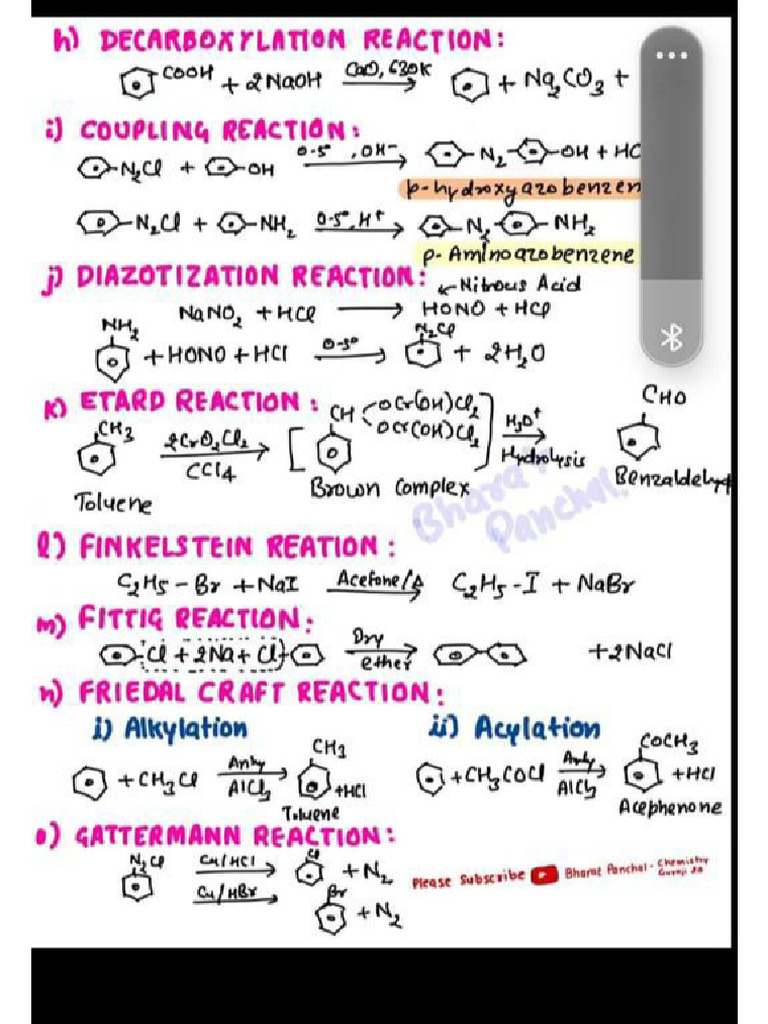 h) DECARBOXYLATION REACTION:
COOH + 2NaOH CaO, 630K + Na2CO3 +
i) COUPLING REACTION:
-N2Cl + -OH 0-5°, OH- -N2- -OH + HC
p-hydroxyazobenzen
-N2Cl + -NH2 0-5°, H+ -N2- -NH2
p-Aminoazobenzene
j) DIAZOTIZATION REACTION:
Nitrous Acid
NaNO2 + HCl → HONO + HCl
NH2 N2Cl
+ HONO + HCl 0-5° + 2H2O
k) ETARD REACTION:
CH3 2CrO2Cl2 CCl4 [ CH OCr(OH)Cl2 OCr(OH)Cl2 ] H3O+ Hydrolysis CHO
Toluene Brown Complex Benzaldehyd
Bharat Panchal.
l) FINKELSTEIN REATION:
C2H5-Br + NaI Acetone/Δ C2H5-I + NaBr
m) FITTIG REACTION:
-Cl + 2Na + Cl- Dry ether + 2NaCl
n) FRIEDAL CRAFT REACTION:
i) Alkylation ii) Acylation
+ CH3Cl Anhy AlCl3 CH3 + HCl + CH3COCl Anhy AlCl3 COCH3 + HCl
Toluene Acephenone
o) GATTERMANN REACTION:
N2Cl Cu/HCl Cl + N2
Cu/HBr Br + N2
Please Subscribe Bharat Panchal - Chemistry Guruji 2.0